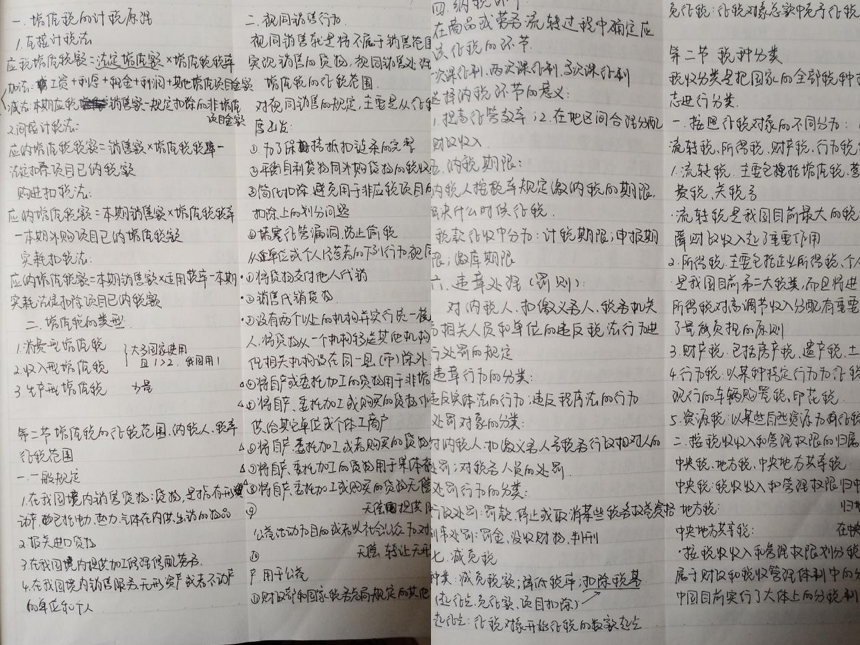 一.增值税的计税原理
1.直接计税法
应税增值税额=法定增值额×增值税税率
加法:工资+利息+租金+利润+其他增值项目金额
减法:本期应税销售额-规定扣除的非增值
项目金额
2.间接计税法:
应纳增值税税额=销售额×增值税税率-
法定扣除项目已纳税额
购进扣税法:
应纳增值税额=本期销售额×增值税税率
-本期外购项目已纳税额
实耗扣税法:
应纳增值税额=本期销售额×适用税率-本期
实耗法定扣除项目已纳税额
二.增值税的类型
1.消费型增值税
大多国家使用
2.收入型增值税
且1>2 我国用1
3.生产型增值税 少量
第二节 增值税的征税范围、纳税人、税率
征税范围
一.一般规定
1.在我国境内销售货物:货物,是指有形
动产,包括电力、热力、气体在内
2.报关进口货物
3.在我国境内提供加工修理修配劳务
4.在我国境内销售服务无形资产或者不动产
的单位和个人
二.视同销售行为
视同销售就是将不属于销售范围
实现销售的货物,视同销售处理
增值税的征税范围.
对视同销售的规定,主要是从征税
①为了保持抵扣链条的完整
②平衡自制货物同外购货物的税收
③简化扣除 避免用于非应税项目
扣除上的划分问题
④堵塞征管漏洞,防止偷税
从单位或个人经营者的下列行为视同
①将货物交付他人代销
②销售代销货物
③设有两个以上的机构并实行统一核
人,将货物从一个机构移送其他机构
但相关机构设在同一县(市)除外
④将自产或委托加工的货物用于非增
⑤将自产、委托加工或购买的货物作
供给其它单位或个体工商户
⑥将自产、委托加工或者购买的货物
⑦将自产、委托加工的货物用于集体福
⑧将自产、委托加工或购买的货物无偿
⑨ 无偿提供服
公益活动为目的或者以社会公众为对
⑩ 无偿转让无形
产 用于公益
⑪财政部和国家税务总局规定的其他
四.纳税环节
在商品或劳务流转过程中确定应
该征税的环节.
一次课征制、两次课征制、多次课征制
选择纳税环节的意义:
1.提高征管效率;2.在地区间合理分配
财政收入
五.纳税期限:
纳税人按税率规定缴纳税的期限.
解决什么时候征税.
税款征收中分为:计税期限;申报期
限;缴库期限
六.违章处理(罚则):
对纳税人、扣缴义务人、税务机关
与相关人员和单位的违反税法行为进
行处罚的规定
违章行为的分类:
违反实体法的行为;违反程序法的行为
处罚对象的分类:
对纳税人、扣缴义务人等税务行政相对人的
处罚;对税务人员的处罚.
处罚行为的分类:
行政处罚:罚款,停止或取消某些税务权益资格
刑事处罚:罚金,没收财物,判刑
七.减免税
种类:减免税额;降低税率;扣除税基
(起征点、免征额、项目扣除)
起征点:征税对象开始征税的数额起点
免征额:征税对象总数中免予征税
第二节 税种分类
税收分类是把国家的全部税种
志进行分类.
一.按照征税对象的不同分为:
流转税、所得税、财产税、行为税
1.流转税.主要包括增值税、营
费税、关税等
·流转税是我国目前最大的税
障财政收入起了主要作用
2.所得税.主要包括企业所得税、个人
是我国目前第二大税类,而且将进
所得税对高调节收入分配有重要
了量能负担的原则
3.财产税.包括房产税、遗产税、土
4.行为税:以某种特定行为为征税
现行的车辆购置税,印花税.
5.资源税:以某些自然资源为课征税
二.按税收收入和管理权限的归属
中央税、地方税、中央地方共享税
中央税:税收收入和管理权限归中
地方税: 归
中央地方共享税: 在中
·按税收收入和管理权限划分税
属于财政和税收管理体制中的
中国目前实行了大体上的分税制